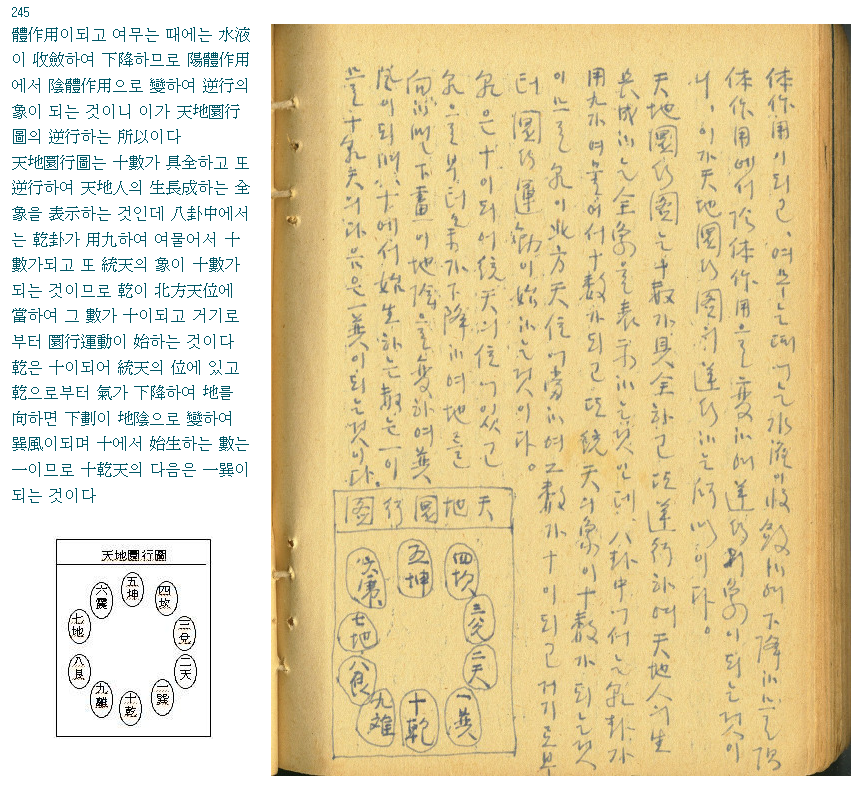 245
體作用이되고 여무는 때에는 水液
이 收斂하여 下降하므로 陽體作用
에서 陰體作用으로 變하여 逆行의
象이 되는 것이니 이가 天地圜行
圖의 逆行하는 所以이다
天地圜行圖는 十數가 具全하고 또
逆行하여 天地人의 生長成하는 全
象을 表示하는 것인데 八卦中에서
는 乾卦가 用九하여 여물어서 十
數가되고 또 統天의 象이 十數가
되는 것이므로 乾이 北方天位에
當하여 그 數가 十이되고 거기로
부터 圜行運動이 始하는 것이다
乾은 十이되어 統天의 位에 있고
乾으로부터 氣가 下降하여 地를
向하면 下劃이 地陰으로 變하여
巽風이되며 十에서 始生하는 數는
一이므로 十乾天의 다음은 一巽이
되는 것이다
天地圜行圖
五坤
四坎
三兌
二天
一巽
十乾
九離
八艮
七地
六震
体作用이되고, 여무는때에는水液이收斂하여下降하므로陽
体作用에서陰体作用으로変하여逆行의象이되는것이
니, 이가天地圜行图의逆行하는所以이다。
天地圜行图는十數가具全하고또逆行하여天地人의生
長成하는全象을表示하는것인데, 八卦中에서는乾卦가
用九하여여물어서十數가되고또統天의象이十數가되는것
이므로乾이北方天位에當하여그數가十이되고거기로부
터圜行運動이始하는것이다。
乾은十이되어統天의位에있고
乾으로부터氣가下降하여地를
向하면下畫이地陰을変하여巽
風이되며十에서始生하는數는一이
므로十乾天의다음은一巽이되는것이다.
天地圜行图
五坤
四坎
三兌
二天
一巽
十乾
九離
八艮
七地
六震